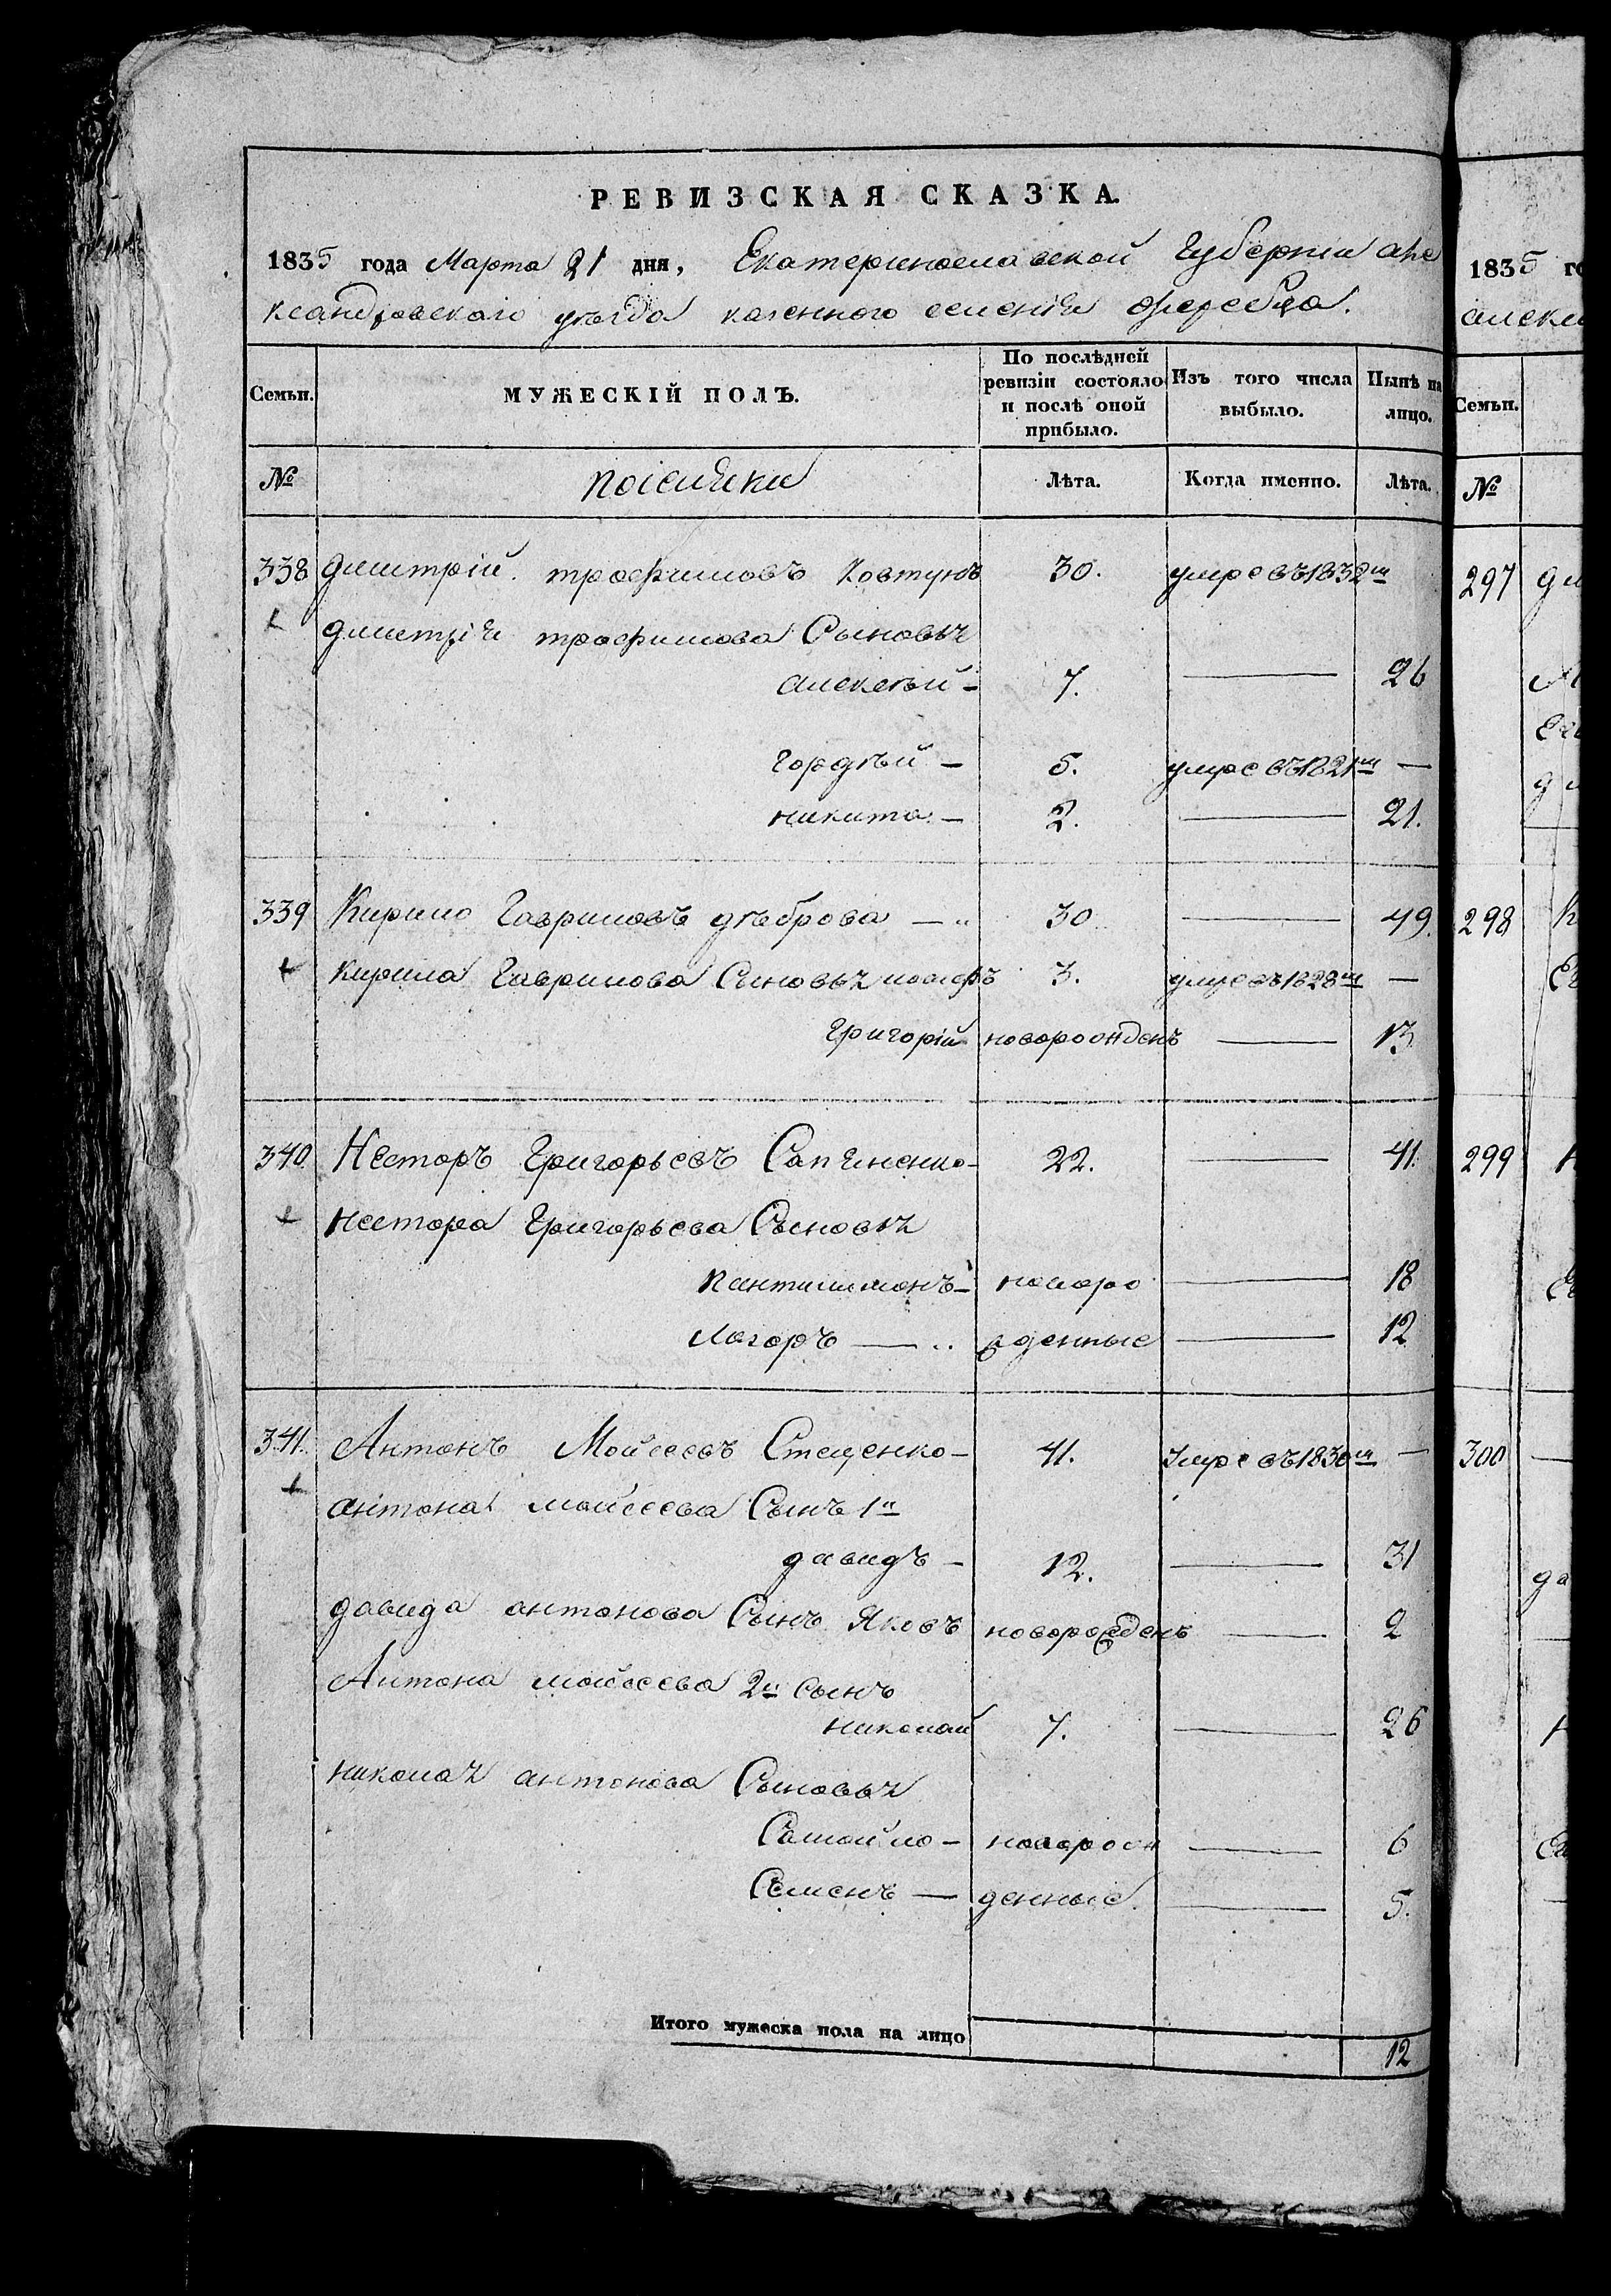 РЕВИЗСКАЯ СКАЗКА.
1835 года Марта 21 дня, Екатеринославской Губернии Але
ксандровскаго уѣзда казенного селенія Жеребца.
Семьи. МУЖЕСКІЙ ПОЛЪ. По послѣдней ревизіи состояло и послѣ оной прибыло. Изъ того числа выбыло. Нынѣ на лицо.
№ Поселяне Лѣта. Когда именно. Лѣта.
338 Дмитрій Трофимовъ Ковтунъ 30. умре въ 1832м
Дмитрія Трофимова Сыновья
Алексѣй - 7. — 26
Гордѣй - 5. умре въ 1821м —
Никита - 2. — 21.
339 Кирило Гавриловъ Дѣброва — 30 — 49.
Кирила Гаврилова Сыновья Иосифъ 3. умре въ 1828м —
Григорій новорожденъ — 13
340 Несторъ Григорьевъ Сапяненко - 22. — 41.
Нестора Григорьева Сыновья
Пантилимонъ - новоро — 18
Логоръ — жденные — 12
341. Антонъ Мойсеевъ Стеценко - 41. Умре въ 1830м —
Антона Мойсеева Сынъ 1й
Давидъ - 12. — 31
Давида Антонова Сынъ Яковъ новорожденъ — 2
Антона Мойсеева 2й Сынъ
Николай 7. — 26
Николая Антонова Сыновья
Самойло - новорож — 6
Семенъ — денные. — 5.
Итого мужеска пола на лицо 12
1835 го
Алекс
Семьи.
№
297 Дм
298 К
299 Н
300
Да